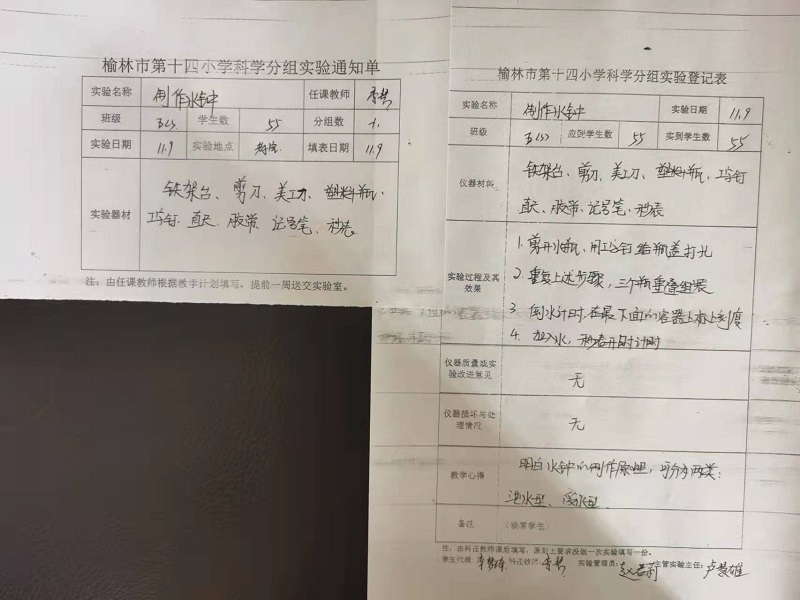 榆林市第十四小学科学分组实验通知单
实验名称 制作水钟 任课教师
班级 五(2) 学生数 55 分组数
实验日期 11.9 实验地点 填表日期 11.9
实验器材 铁架台、剪刀、美工刀、塑料瓶、
工字钉、直尺、胶带、记号笔、秒表
注:由任课教师根据教学计划填写,提前一周送交实验室。
榆林市第十四小学科学分组实验登记表
实验名称 制作水钟 实验日期 11.9
班级 五(2) 应到学生数 55 实到学生数 55
仪器材料 铁架台、剪刀、美工刀、塑料瓶、工字钉
直尺、胶带、记号笔、秒表
实验过程及其效果
1. 剪开水瓶,用工字钉给瓶盖打孔
2. 重复上述步骤,三个瓶重叠组装
3 倒水计时,在最下面的容器上标上刻度
4. 加入水,秒表开始计时
仪器质量或实验改进意见 无
仪器损坏与处理情况 无
教学心得 明白水钟的制作原理,可分为两类:
泄水型、受水型.
备注 (缺席学生)
注:由科任教师课后填写,原则上要求没做一次实验填写一份。
学生代表: 科任教师: 实验管理员: 主管实验主任: